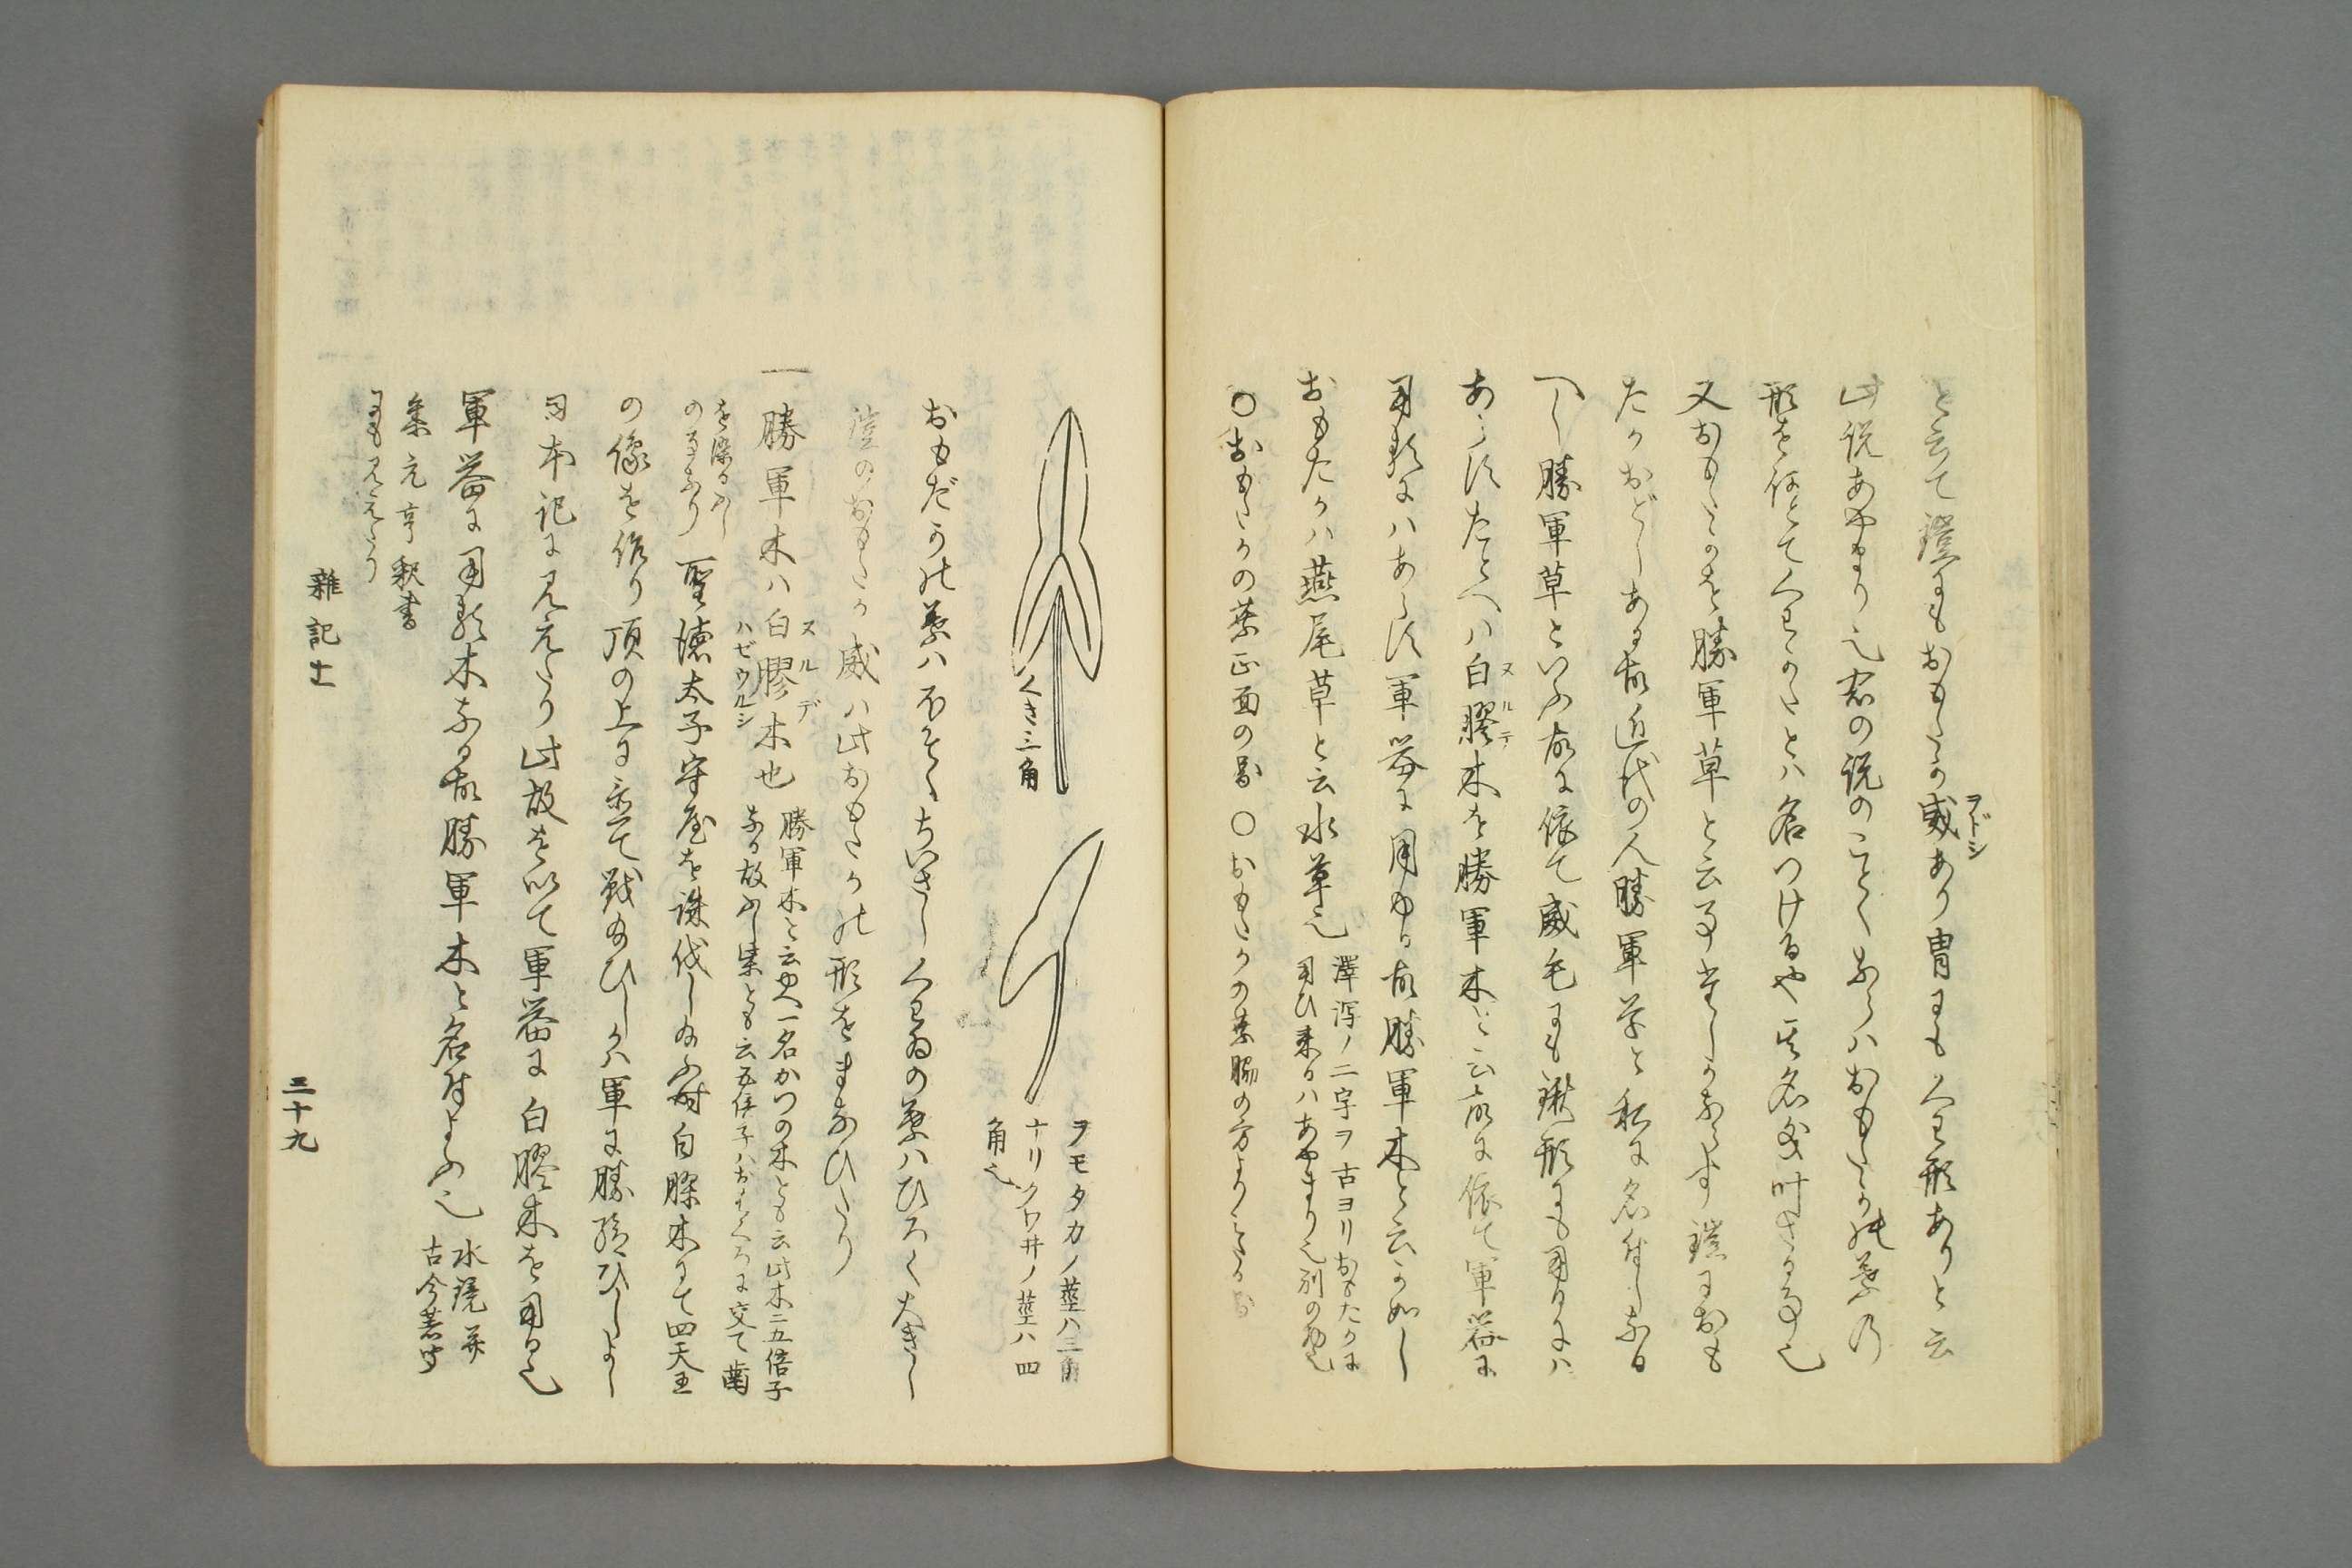 と云て鎧にもおもたか威あり冑にもくわ形ありと云
ヲドシ
此説あやまり也君の説のことくならハおもたかの葉乃
形を何とてくわかたとハ名つけるや其名義叶さる事也
又おもたかを勝軍草と云事たしかならす鎧におも
たかおどしある故近代の人勝軍草と私に名付しなる
へし勝軍草といふ故に依て威毛にも鍬形にも用るにハ
あらすたとへハ白膠木を勝軍木と云故に依て軍器に
ヌルデ
用るにハあらす軍器に用ゆる故勝軍木と云か如し
おもたかハ燕尾草と云水草也
澤瀉ノ二字ヲ古ヨリおもたかに
用ひ来るハあやまり也別の物也
○おもたかの葉正面の圖 ○おもたかの葉脇の方よりミたる圖
くき三角
ヲモタカノ莖ハ三角
ナリクワ井ノ莖ハ四
角也
おもだかの葉ハほそくちいさしくわゐの葉ハひろく大きし
鎧のおもたか威ハ此おもたかの形をまなひたり
一 勝軍木ハ白膠木也
ヌルデ
ハゼウルシ
勝軍木と云也一名かつの木とも云此木ニ五倍子
なる故ふし柴とも云五倍子ハおはくろに交て歯
を染るふし
の事なり
聖徳太子守屋を誅伐し給ふ時白膠木にて四天王
の像を作り頂の上に立て戦給ひしかハ軍に勝給ひしよし
日本記に見えたり此故を以て軍器に白膠木を用る也
軍器に用る木なる故勝軍木と名付よふ也
水鏡并
古今著聞
集元亨釈書
にも見えたり
雜記十一
三十九